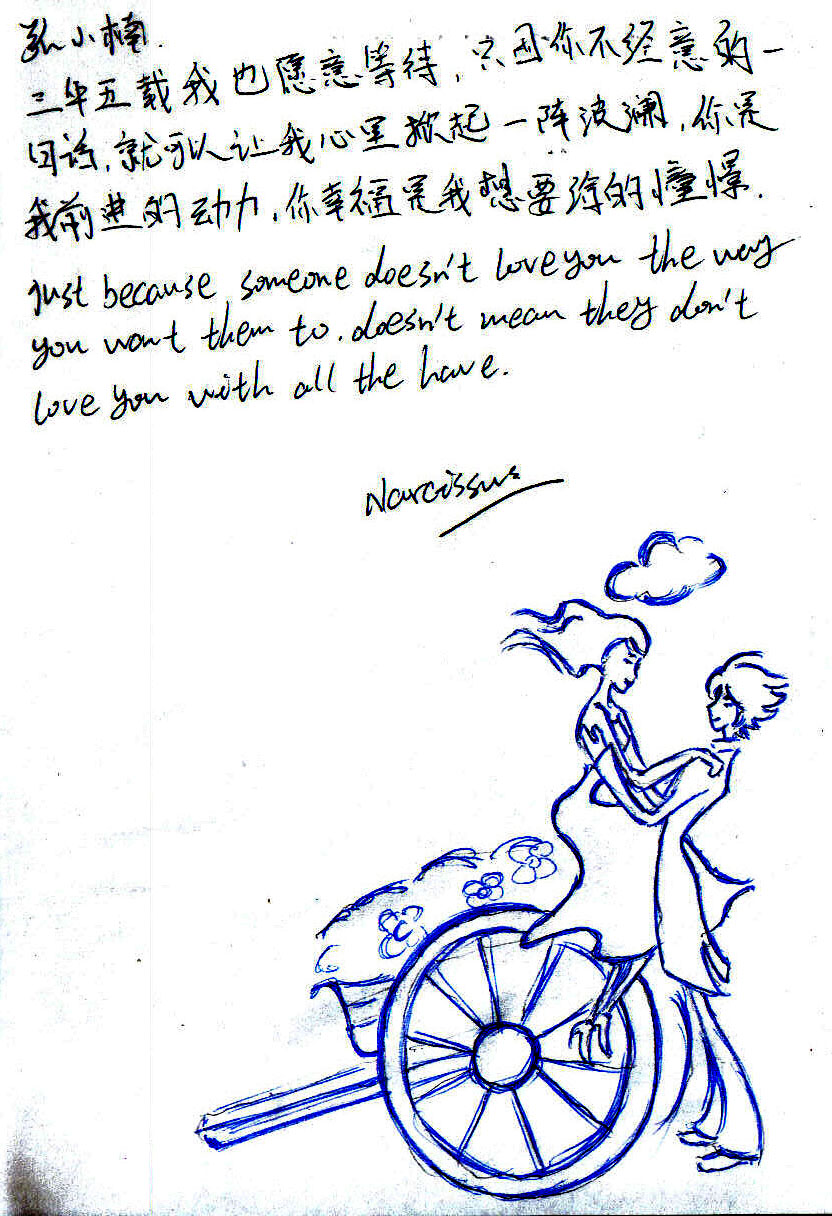 孙小楠.
三年五载我也愿意等待,只因你不经意的一
句话,就可以让我心里掀起一阵波澜,你是
我前进的动力,你幸福是我想要给的憧憬.
Just because someone doesn't love you the way
you want them to. doesn't mean they don't
love you with all the have.
Narcissus